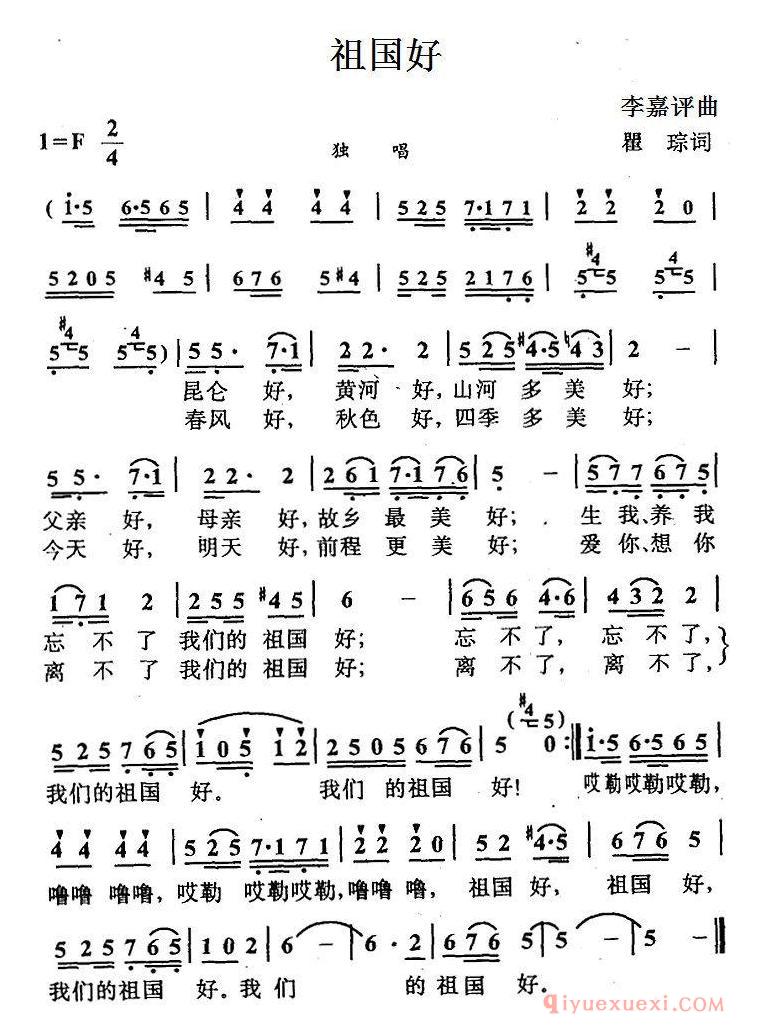 祖国好
李嘉评曲
1=F 2/4 独 唱 瞿 琮词
(i·5 6·565 | 4 4 4 4 | 525 7·171 | 2 2 2 0 |
5205 #4 5 | 676 5#4 | 525 2176 | 5 #4 5 5 4 5 |
5 #4 5 5 4 5) | 55· 7·1 | 22· 2 | 525 #4·5 ♮43 | 2 - |
昆仑 好, 黄河 好, 山河 多 美 好;
春风 好, 秋色 好, 四季 多 美 好;
55· 7·1 | 22· 2 | 261 7·176 | 5 - | 577 675 |
父亲 好, 母亲 好, 故乡 最 美 好; 生 我、养 我
今天 好, 明天 好, 前程 更 美 好; 爱 你、想 你
171 2 | 255 #45 | 6 - | 656 4·6 | 432 2 |
忘 不 了 我们的 祖国 好; 忘 不 了, 忘 不了,
离 不 了 我们的 祖国 好; 离 不 了, 离 不了,
525765 | 105 12 | 2505 676 | 5 (#4 5) 0 :‖ i·5 6·565 |
我们的祖国 好。 我们 的祖国 好! 哎勒哎勒哎勒,
4 4 4 4 | 525 7·171 | 2 2 2 0 | 52 #4·5 | 676 5 |
噜噜 噜噜, 哎勒 哎勒哎勒, 噜噜 噜, 祖国 好, 祖国 好,
525765 | 102 | 6 - | 6 2· | 676 5 | 5 - | 5 - ‖
我们的祖国 好。我 们 的 祖国 好。
qiyuexuexi.com